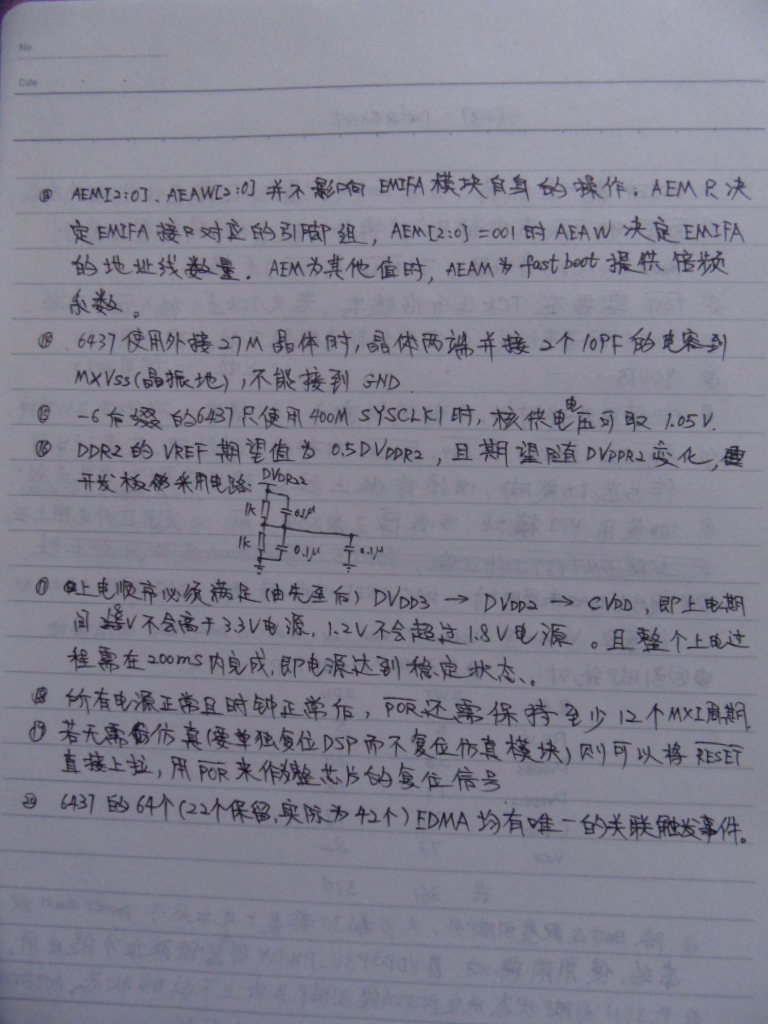 No.
Date
⑬ AEM[2:0]、AEAW[2:0] 并不影响 EMIFA 模块自身的操作. AEM只决
定EMIFA接口对应的引脚组, AEM[2:0]=001时AEAW 决定EMIFA
的地址线数量. AEM为其他值时, AEAM为fastboot提供倍频
系数。
⑭ 6437使用外接27M晶体时,晶体两端并接2个10PF的电容到
MXVss(晶振地),不能接到 GND
⑮ -6后缀的6437只使用400M SYSCLK1时, 核供电电压可取 1.05V.
⑯ DDR2的VREF期望值为 0.5DVDDR2, 且期望随DVDDR2变化,
开发板采用电路:
DVDR22
1k 0.1μ
1k 0.1μ 0.1μ
⑰ 上电顺序必须满足(由先至后) DVDD3 → DVDD2 → CVDD, 即上电期
间 1.8V不会高于3.3V电源, 1.2V不会超过1.8V电源。且整个上电过
程需在200ms内完成,即电源达到稳定状态、。
⑱ 所有电源正常且时钟正常后, POR还需保持至少12个MXI周期
⑲ 若无需仿真(要单独复位DSP而不复位仿真模块)则可以将RESET
直接上拉, 用POR来作为整芯片的复位信号
⑳ 6437的64个(22个保留,实际为42个)EDMA均有唯一的关联触发事件。